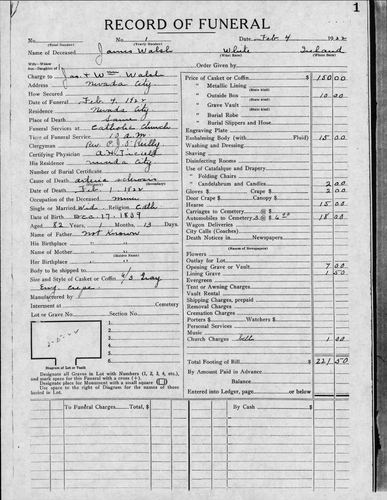 1
RECORD OF FUNERAL
No. No. 1 Date Feb 4 1922
(Total Number) (Yearly Number)
Name of Deceased James Walsh White Ireland
Charge to Jas. & Wm Walsh Order Given by
Address Nevada City
How Secured
Date of Funeral Feb 4, 1922
Residence Nevada City
Place of Death Same
Funeral Services at Catholic Church
Time of Funeral Service 10 A.M.
Clergyman Rev. Reilly
Certifying Physician
His Residence Nevada City
Number of Burial Certificate
Cause of Death
Date of Death Feb 1 1922
Occupation of the Deceased Miner
Single or Married Wid. Religion Cath
Date of Birth Dec. 17. 1839
Aged 82 Years 1 Months 13 Days
Name of Father Not Known
His Birthplace " "
Name of Mother " "
Her Birthplace " "
Body to be shipped to
Size and Style of Casket or Coffin 6/3 Gray
Eng. Crepe
Manufactured by
Interment at Cemetery
Lot or Grave No. Section No.
1.
2.
3.
4.
5.
6.
Diagram of Lot or Vault
Designate all Graves in Lot with Numbers (1, 2, 3, 4, etc.),
and mark space for this Funeral with a cross (+).
Designate place for Monument with a small square
Use space to the right of Diagram for the names of those
buried in Lot.
Price of Casket or Coffin $ 150 00
" Metallic Lining
" Outside Box 10 00
" Grave Vault
" Burial Robe
" Burial Slippers and Hose
Engraving Plate
Embalming Body (with Fluid) 15 00
Washing and Dressing
Shaving
Disinfecting Rooms
Use of Catafalque and Drapery
" Folding Chairs
" Candelabrum and Candles 2 00
Gloves $ Crape $ 2 00
Door Crape $ Canopy $
Hearse 15 00
Carriages to Cemetery @ $
Automobiles to Cemetery 3 @ $ 6 00 18 00
Wagon Deliveries
City Calls (Coaches)
Death Notices in Newspapers
(Names of Newspapers)
Flowers
Outlay for Lot
Opening Grave or Vault 7 00
Lining Grave 1 50
Evergreen
Tent or Awning Charges
Vault Rental
Shipping Charges, prepaid
Removal Charges
Cremation Charges
Porters $ Watchers $
Personal Services
Music
Church Charges bell 1 00
Total Footing of Bill $ 221 50
By Amount Paid in Advance
Balance
Entered into Ledger, page or below
To Funeral Charges, Total, $ By Cash $